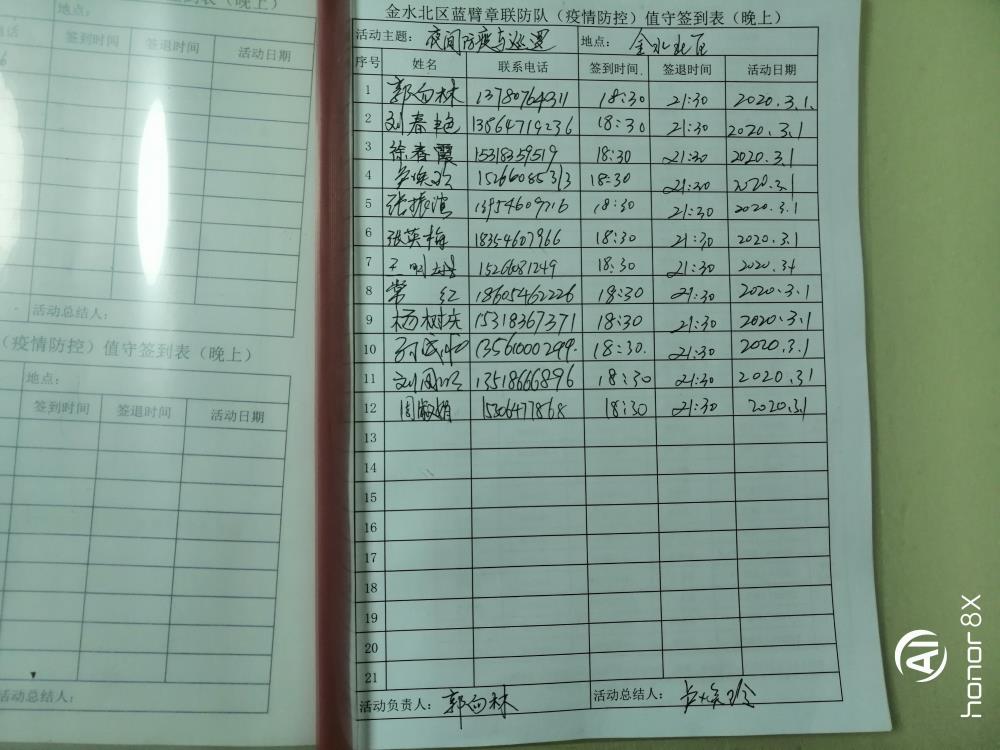 守签到表（晚上）
地点：
签到时间 签退时间 活动日期
活动总结人：
（疫情防控）值守签到表（晚上）
地点：
签到时间 签退时间 活动日期
活动总结人：
金水北区蓝臂章联防队（疫情防控）值守签到表（晚上）
活动主题： 夜间防疫与巡逻 地点： 金水北区
序号 姓名 联系电话 签到时间 签退时间 活动日期
1 郭向林 13780764311 18:30 21:30 2020.3.1.
2 刘春艳 13864719236 18:30 21:30 2020.3.1
3 徐春霞 15318359519 18:30 21:30 2020.3.1
4 15266085313 18:30 21:30 2020.3.1
5 张振滨 13954609716 18:30 21:30 2020.3.1
6 张英梅 18354607966 18:30 21:30 2020.3.1
7 1526081249 18:30 21:30 2020.3.1
8 常红 18605462226 18:30 21:30 2020.3.1
9 杨树庆 15318367371 18:30 21:30 2020.3.1
10 18:30. 21:30 2020.3.1
11 13518666896 18:30 21:30 2020.3.1
12 周敏娟 15306477868 18:30 21:30 2020.3.1
13
14
15
16
17
18
19
20
21
活动负责人： 郭向林 活动总结人： 卢焕玲
AI
honor 8X